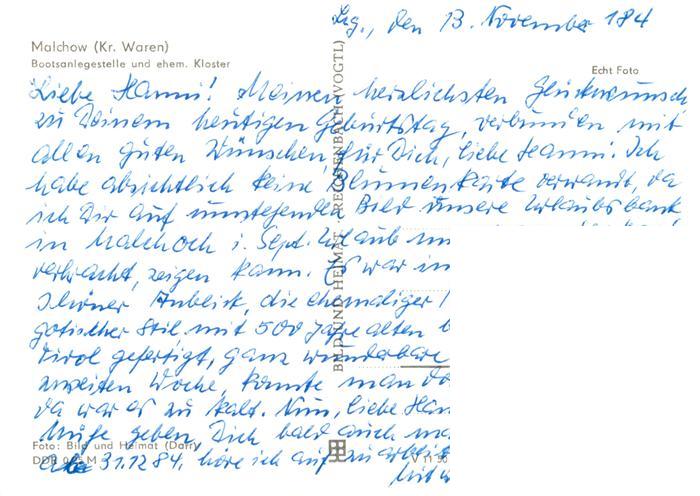 Lzg., den 13. November 184
Malchow (Kr. Waren)
Bootsanlegestelle und ehem. Kloster
Echt Foto
Liebe Hanni! Meinen herzlichsten Glückwunsch
zu Deinem heutigen Geburtstag, verbunden mit
allen guten Wünschen für Dich, liebe Hanni. Ich
habe absichtlich keine Blumenkarte verwandt, da
ich Dir auf umstehenden Bild unsere Urlaubsbank
in Malchoch i. Sept. Urlaub
verbracht, zeigen kann. Es war
schöner Anblick, die ehemaliger
gotischer Stil mit 500 Jahre alten
Tirol gefertigt, ganz wunderbare
zweiten Woche, konnte man
da war es zu kalt. Nun, liebe Han
geben, Dich bald auch
31.12 84. höre ich auf zu arbeit
Mit
BILD UND HEIMAT REICHENBACH (VOGTL)
Foto: Bild und Heimat (Darr)
DDR M
V 11 50